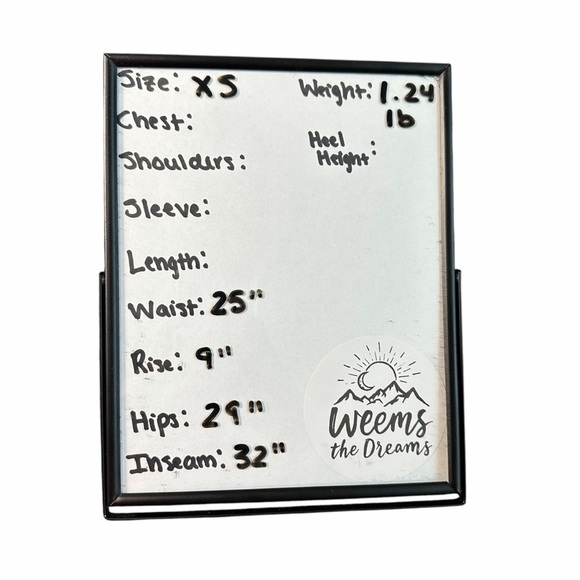 Size: XS
Weight: 1.24
lb
Chest:
Heel
Height:
Shoulders:
Sleeve:
Length:
Waist: 25"
Rise: 9"
Hips: 29"
Inseam: 32"
Weems
the Dreams